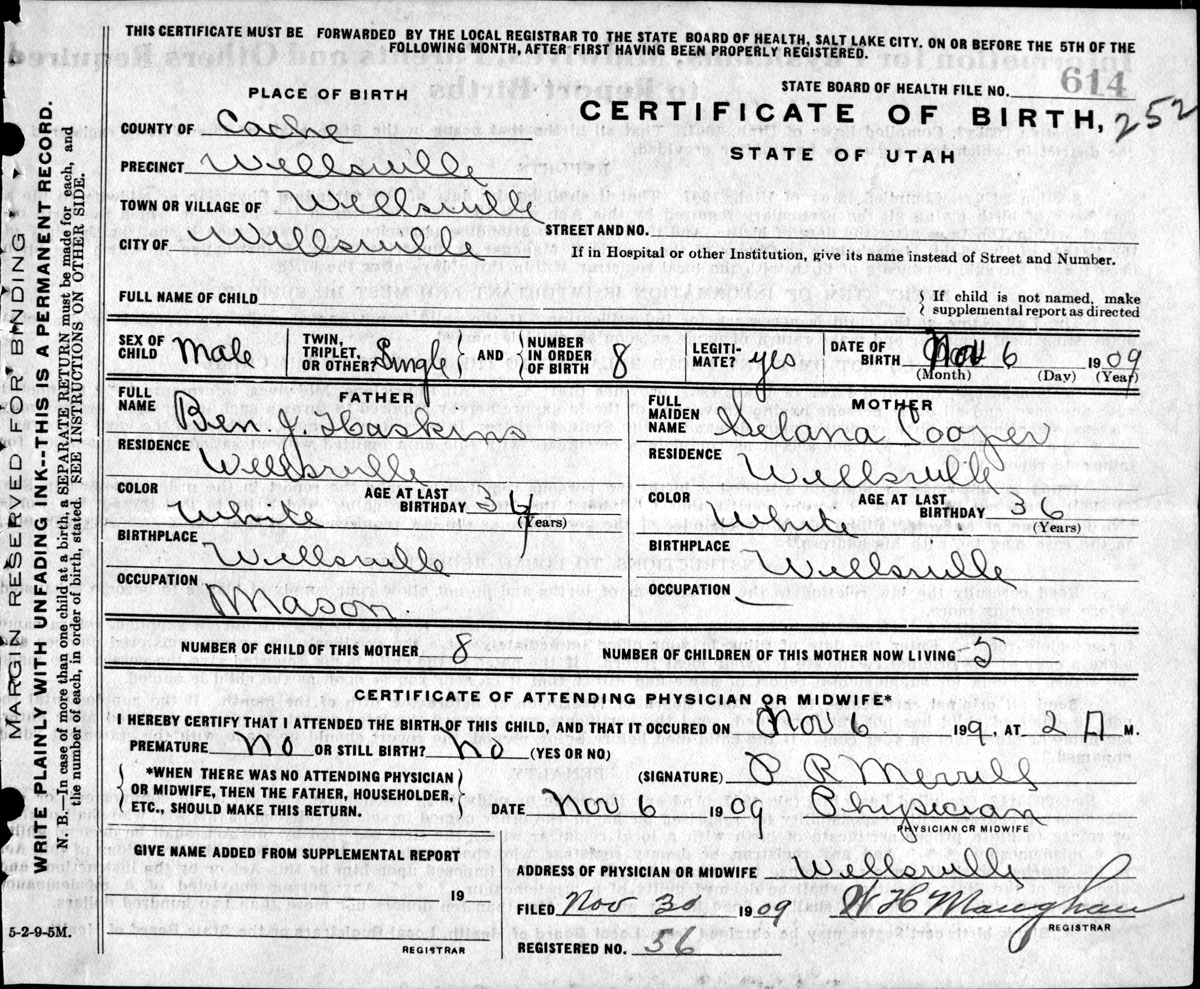 THIS CERTIFICATE MUST BE FORWARDED BY THE LOCAL REGISTRAR TO THE STATE BOARD OF HEALTH, SALT LAKE CITY. ON OR BEFORE THE 5TH OF THE
FOLLOWING MONTH, AFTER FIRST HAVING BEEN PROPERLY REGISTERED.
STATE BOARD OF HEALTH FILE NO. 614
PLACE OF BIRTH
CERTIFICATE OF BIRTH, 252
STATE OF UTAH
COUNTY OF Cache
PRECINCT Wellsville
TOWN OR VILLAGE OF Wellsville
STREET AND NO.
CITY OF Wellsville
If in Hospital or other Institution, give its name instead of Street and Number.
FULL NAME OF CHILD
If child is not named, make
supplemental report as directed
SEX OF CHILD Male
TWIN, TRIPLET, OR OTHER? Single AND NUMBER IN ORDER OF BIRTH 8
LEGITIMATE? yes
DATE OF BIRTH Nov 6 1909
(Month) (Day) (Year)
FATHER
FULL NAME Ben J. Haskins
RESIDENCE Wellsville
COLOR White
AGE AT LAST BIRTHDAY 34
(Years)
BIRTHPLACE Wellsville
OCCUPATION Mason.
MOTHER
FULL MAIDEN NAME Selana Cooper
RESIDENCE Wellsville
COLOR
AGE AT LAST BIRTHDAY 36
(Years)
BIRTHPLACE Wellsville
OCCUPATION —
NUMBER OF CHILD OF THIS MOTHER 8
NUMBER OF CHILDREN OF THIS MOTHER NOW LIVING 5
CERTIFICATE OF ATTENDING PHYSICIAN OR MIDWIFE*
I HEREBY CERTIFY THAT I ATTENDED THE BIRTH OF THIS CHILD, AND THAT IT OCCURED ON Nov 6 199, AT 2 A M.
PREMATURE No OR STILL BIRTH? No (YES OR NO)
*WHEN THERE WAS NO ATTENDING PHYSICIAN
OR MIDWIFE, THEN THE FATHER, HOUSEHOLDER,
ETC., SHOULD MAKE THIS RETURN.
(SIGNATURE) P R Merrill
DATE Nov 6 1909 Physician
PHYSICIAN OR MIDWIFE
GIVE NAME ADDED FROM SUPPLEMENTAL REPORT
19
REGISTRAR
ADDRESS OF PHYSICIAN OR MIDWIFE Wellsville
FILED Nov 30 1909 W H Maughan
REGISTRAR
REGISTERED NO. 56
5-2-9-5M.
MARGIN RESERVED FOR BINDING
WRITE PLAINLY WITH UNFADING INK--THIS IS A PERMANENT RECORD.
N. B.—In case of more than one child at a birth, a SEPARATE RETURN must be made for each, and
the number of each, in order of birth, stated. SEE INSTRUCTIONS ON OTHER SIDE.